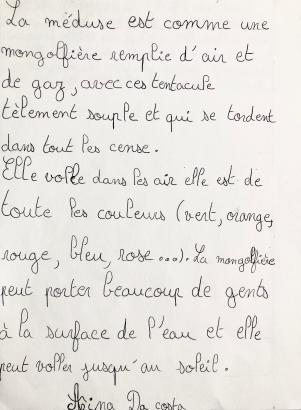 La méduse est comme une
mongolfière remplie d'air et
de gaz, avec ces tentacule
tèlement souple et qui se tordent
dans tout les cense.
Elle volle dans les air elle est de
toute les couleurs (vert, orange,
rouge, bleu, rose...). La mongolfière
peut porter beaucoup de gents
à la surface de l'eau et elle
peut voller jusqu'au soleil.
Da costa